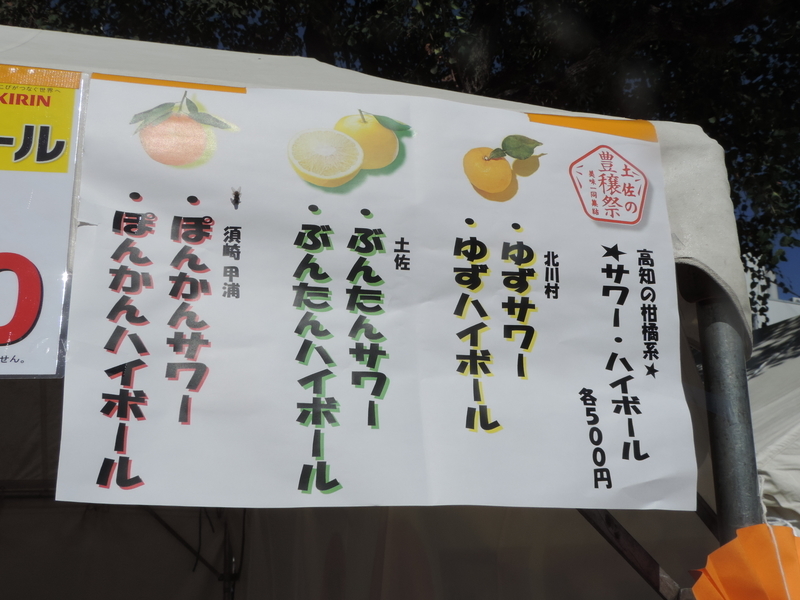 土佐の
豊穣祭
美味一同集結
高知の柑橘系★
★サワー・ハイボール
各500円
北川村
・ゆずサワー
・ゆずハイボール
土佐
・ぶんたんサワー
・ぶんたんハイボール
須崎 甲浦
・ぽんかんサワー
・ぽんかんハイボール
KIRIN
ール
0
せん。